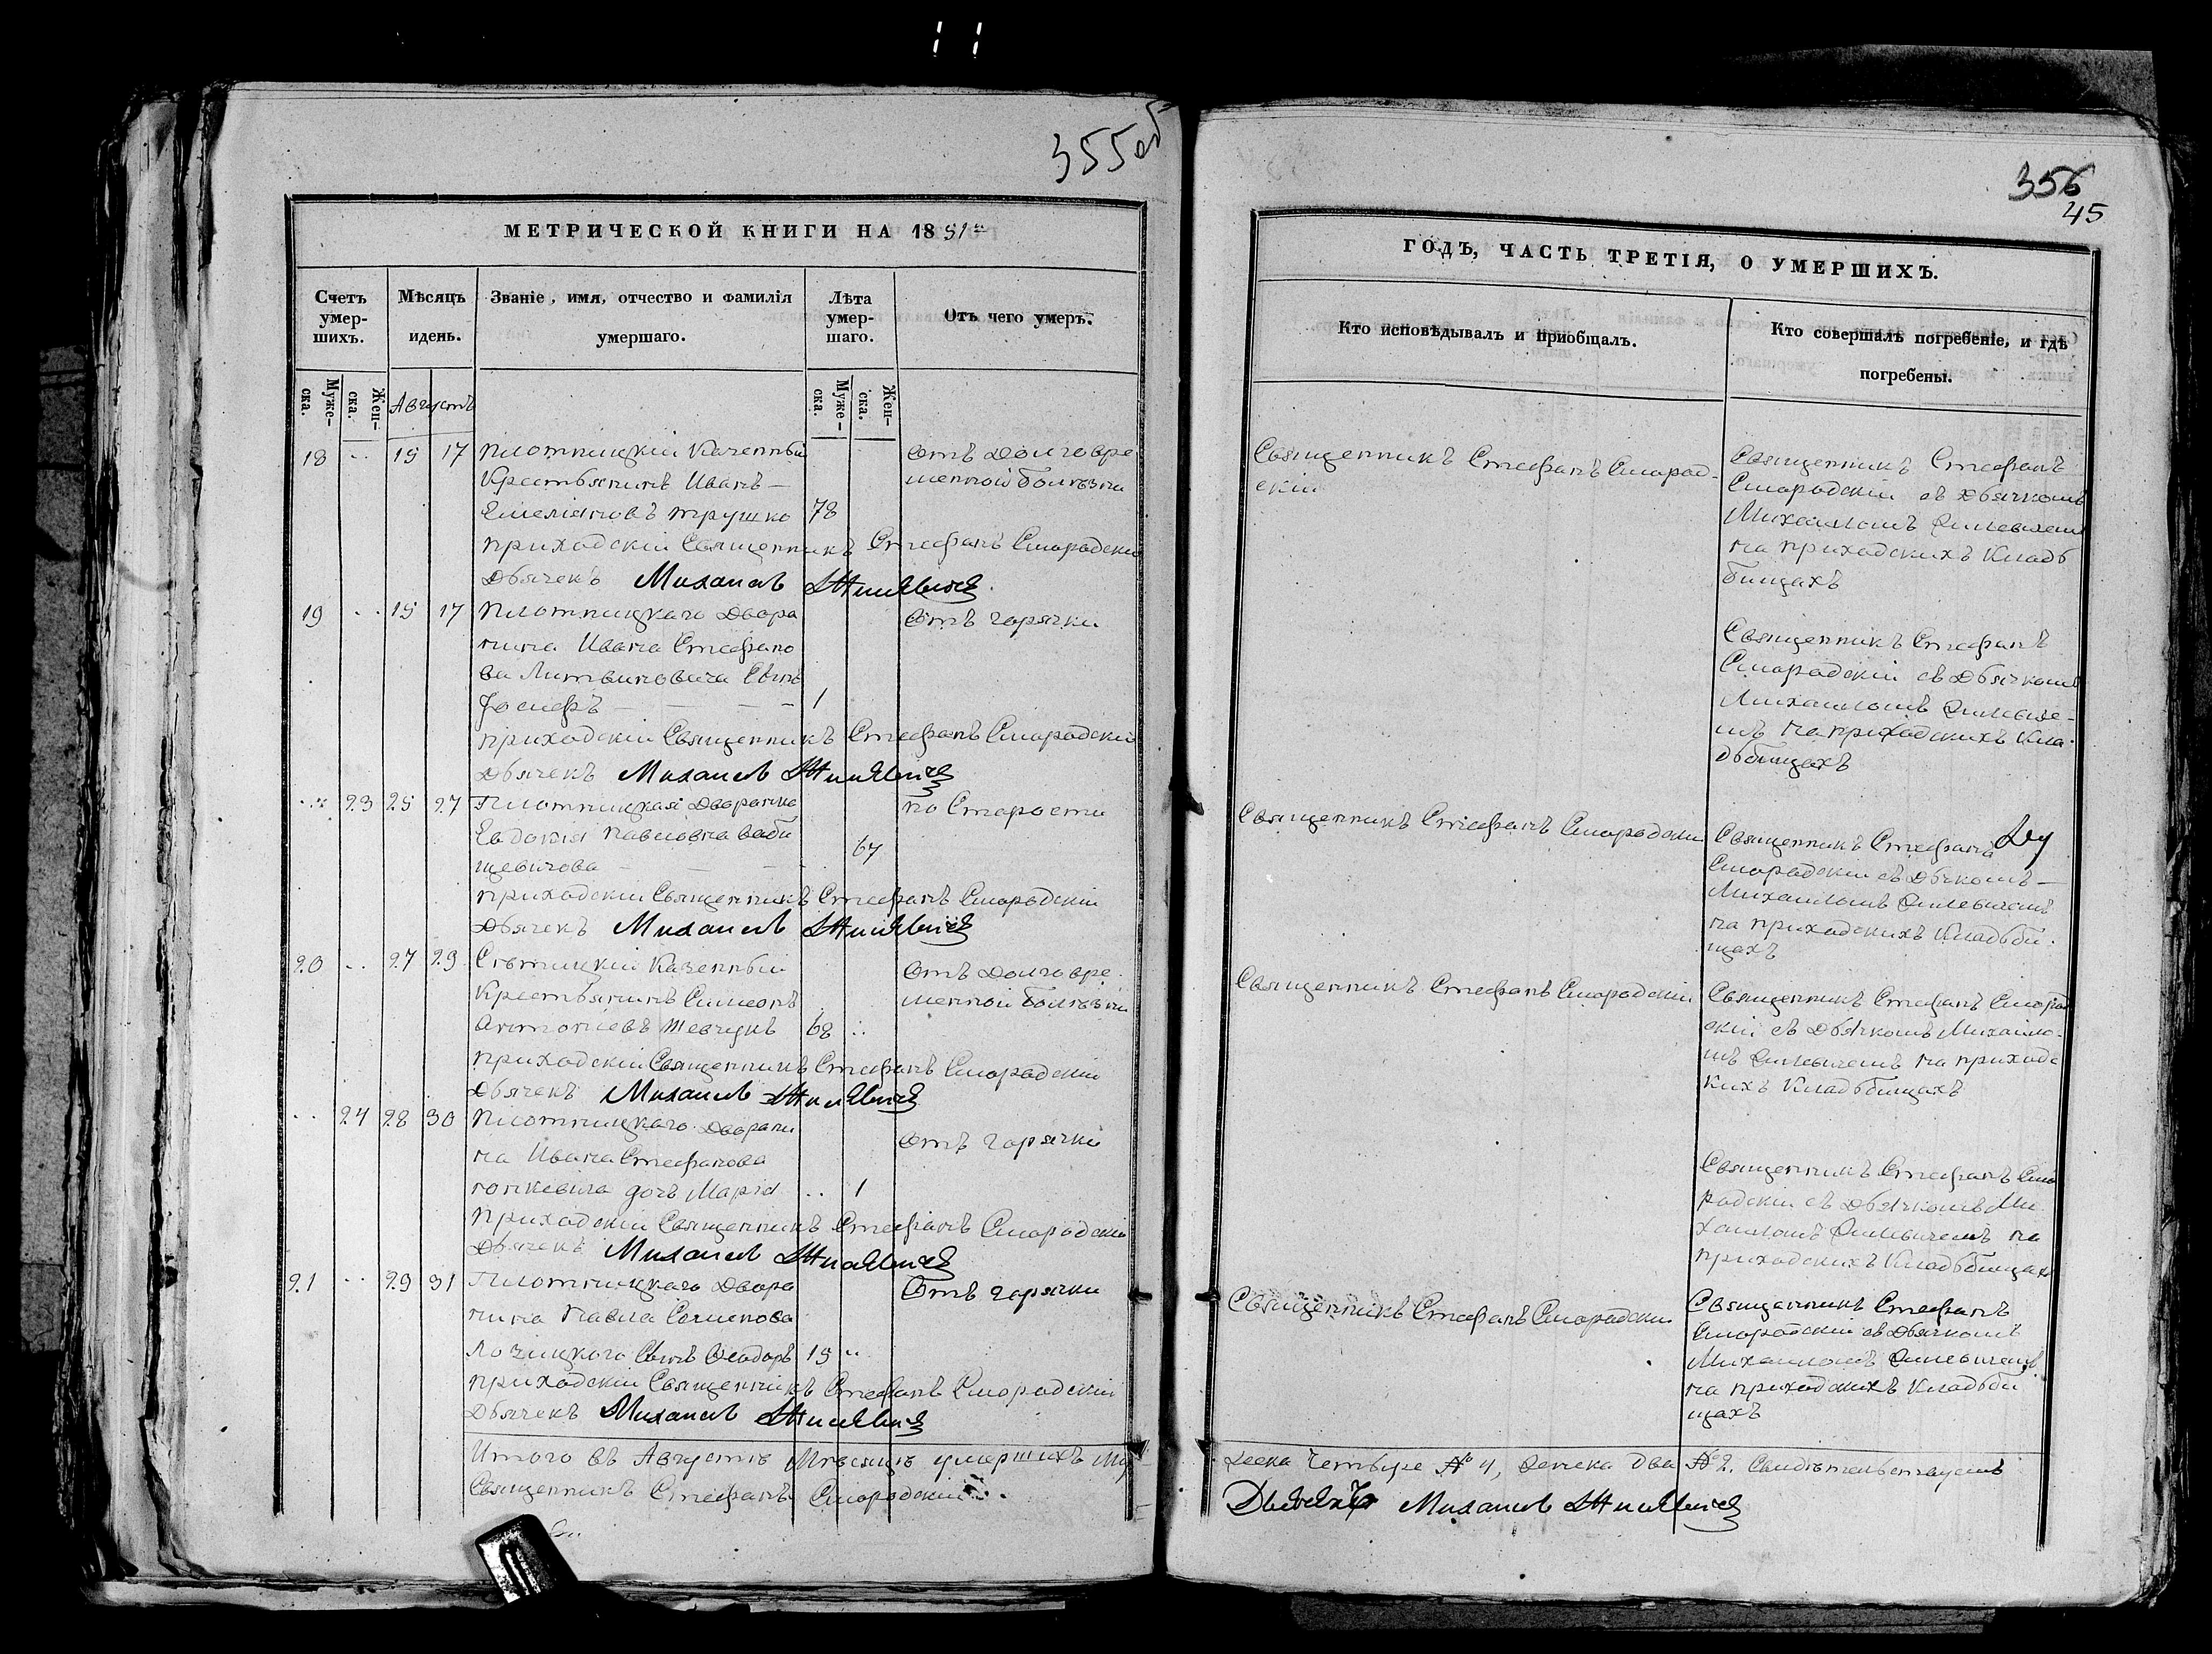 355об
МЕТРИЧЕСКОЙ КНИГИ НА 1851
Счетъ умер-шихъ.
Мѣсяцъ идень.
Званіе, имя, отчество и фамилія умершаго.
Лѣта умер-шаго.
Отъ чего умеръ.
Муже-ска.
Жен-ска.
Августъ
Муже-ска.
Жен-ска.
18 15 17 Плотницкій Казенный
Крестьянинъ Иванъ
Емеліяновъ Трушко 78
Отъ долговре
менной болѣзни
приходскій Священникъ Стефанъ Смородскій
Дьячекъ Михаилъ
19 15 17 Плотницкаго Дворя
нина Ивана Стефано
ва Литвиновича Сынъ
Іосифъ 1
Отъ горячки
приходскій Священникъ Стефанъ Смородскій
Дьячекъ Михаилъ
23 25 27 Плотницкая Дворянка
Евдокія Павловна Баби
щевичова 67
по Старости
приходскій Священникъ Стефанъ Смородскій
Дьячекъ Михаилъ
20 27 29 Казенный
Крестьянинъ Симеонъ
Антоніевъ Шевчукъ 68
Отъ долговре
менной болѣзни
приходскій Священникъ Стефанъ Смородскій
Дьячекъ Михаилъ
24 28 30 Плотницкаго Дворяни
на Ивана Стефанова
дочь Марія 1
Отъ горячки
приходскій Священникъ Стефанъ Смородскій
Дьячекъ Михаилъ
21 29 31 Плотницкаго Дворя
нина Павла
Лозицкого Сынъ Ѳеодоръ 15
Отъ горячки
приходскій Священникъ Стефанъ Смородскій
Дьячекъ Михаилъ
Итого въ Августѣ Мѣсяцѣ умершихъ Му
Священникъ Стефанъ Смородскій
356
45
ГОДЪ, ЧАСТЬ ТРЕТІЯ, О УМЕРШИХЪ.
Кто исповѣдывалъ и пріобщалъ.
Кто совершалъ погребеніе, и гдѣ погребены.
Священникъ Стефанъ Смород-
скій
Священникъ Стефанъ
Смородскій съ Дьячкомъ
Михаиломъ
на приходскихъ Кладь
бищахъ
Священникъ Стефанъ
Смородскій съ Дьячкомъ
Михаиломъ
на приходскихъ Кла
дьбищахъ
Священникъ Стефанъ Смородскій
Священникъ Стефанъ
Смородскій съ Дьячкомъ
Михаиломъ
на приходскихъ Кладьби
щахъ
Священникъ Стефанъ Смородскій
Священникъ Стефанъ Смород
скій съ Дьячкомъ Михаило
мъ на приходс
кихъ Кладьбищахъ
Священникъ Стефанъ Смо
родскій съ Дьячкомъ Ми
хаиломъ на
приходскихъ Кладьбищахъ
Священникъ Стефанъ Смородскій
Священникъ Стефанъ
Смородскій съ Дьячкомъ
Михаиломъ
на приходскихъ Кладьби
щахъ
жеска Четыре № 4, Женска два № 2. Свидѣтельствуемъ
Дьячекъ Михаилъ